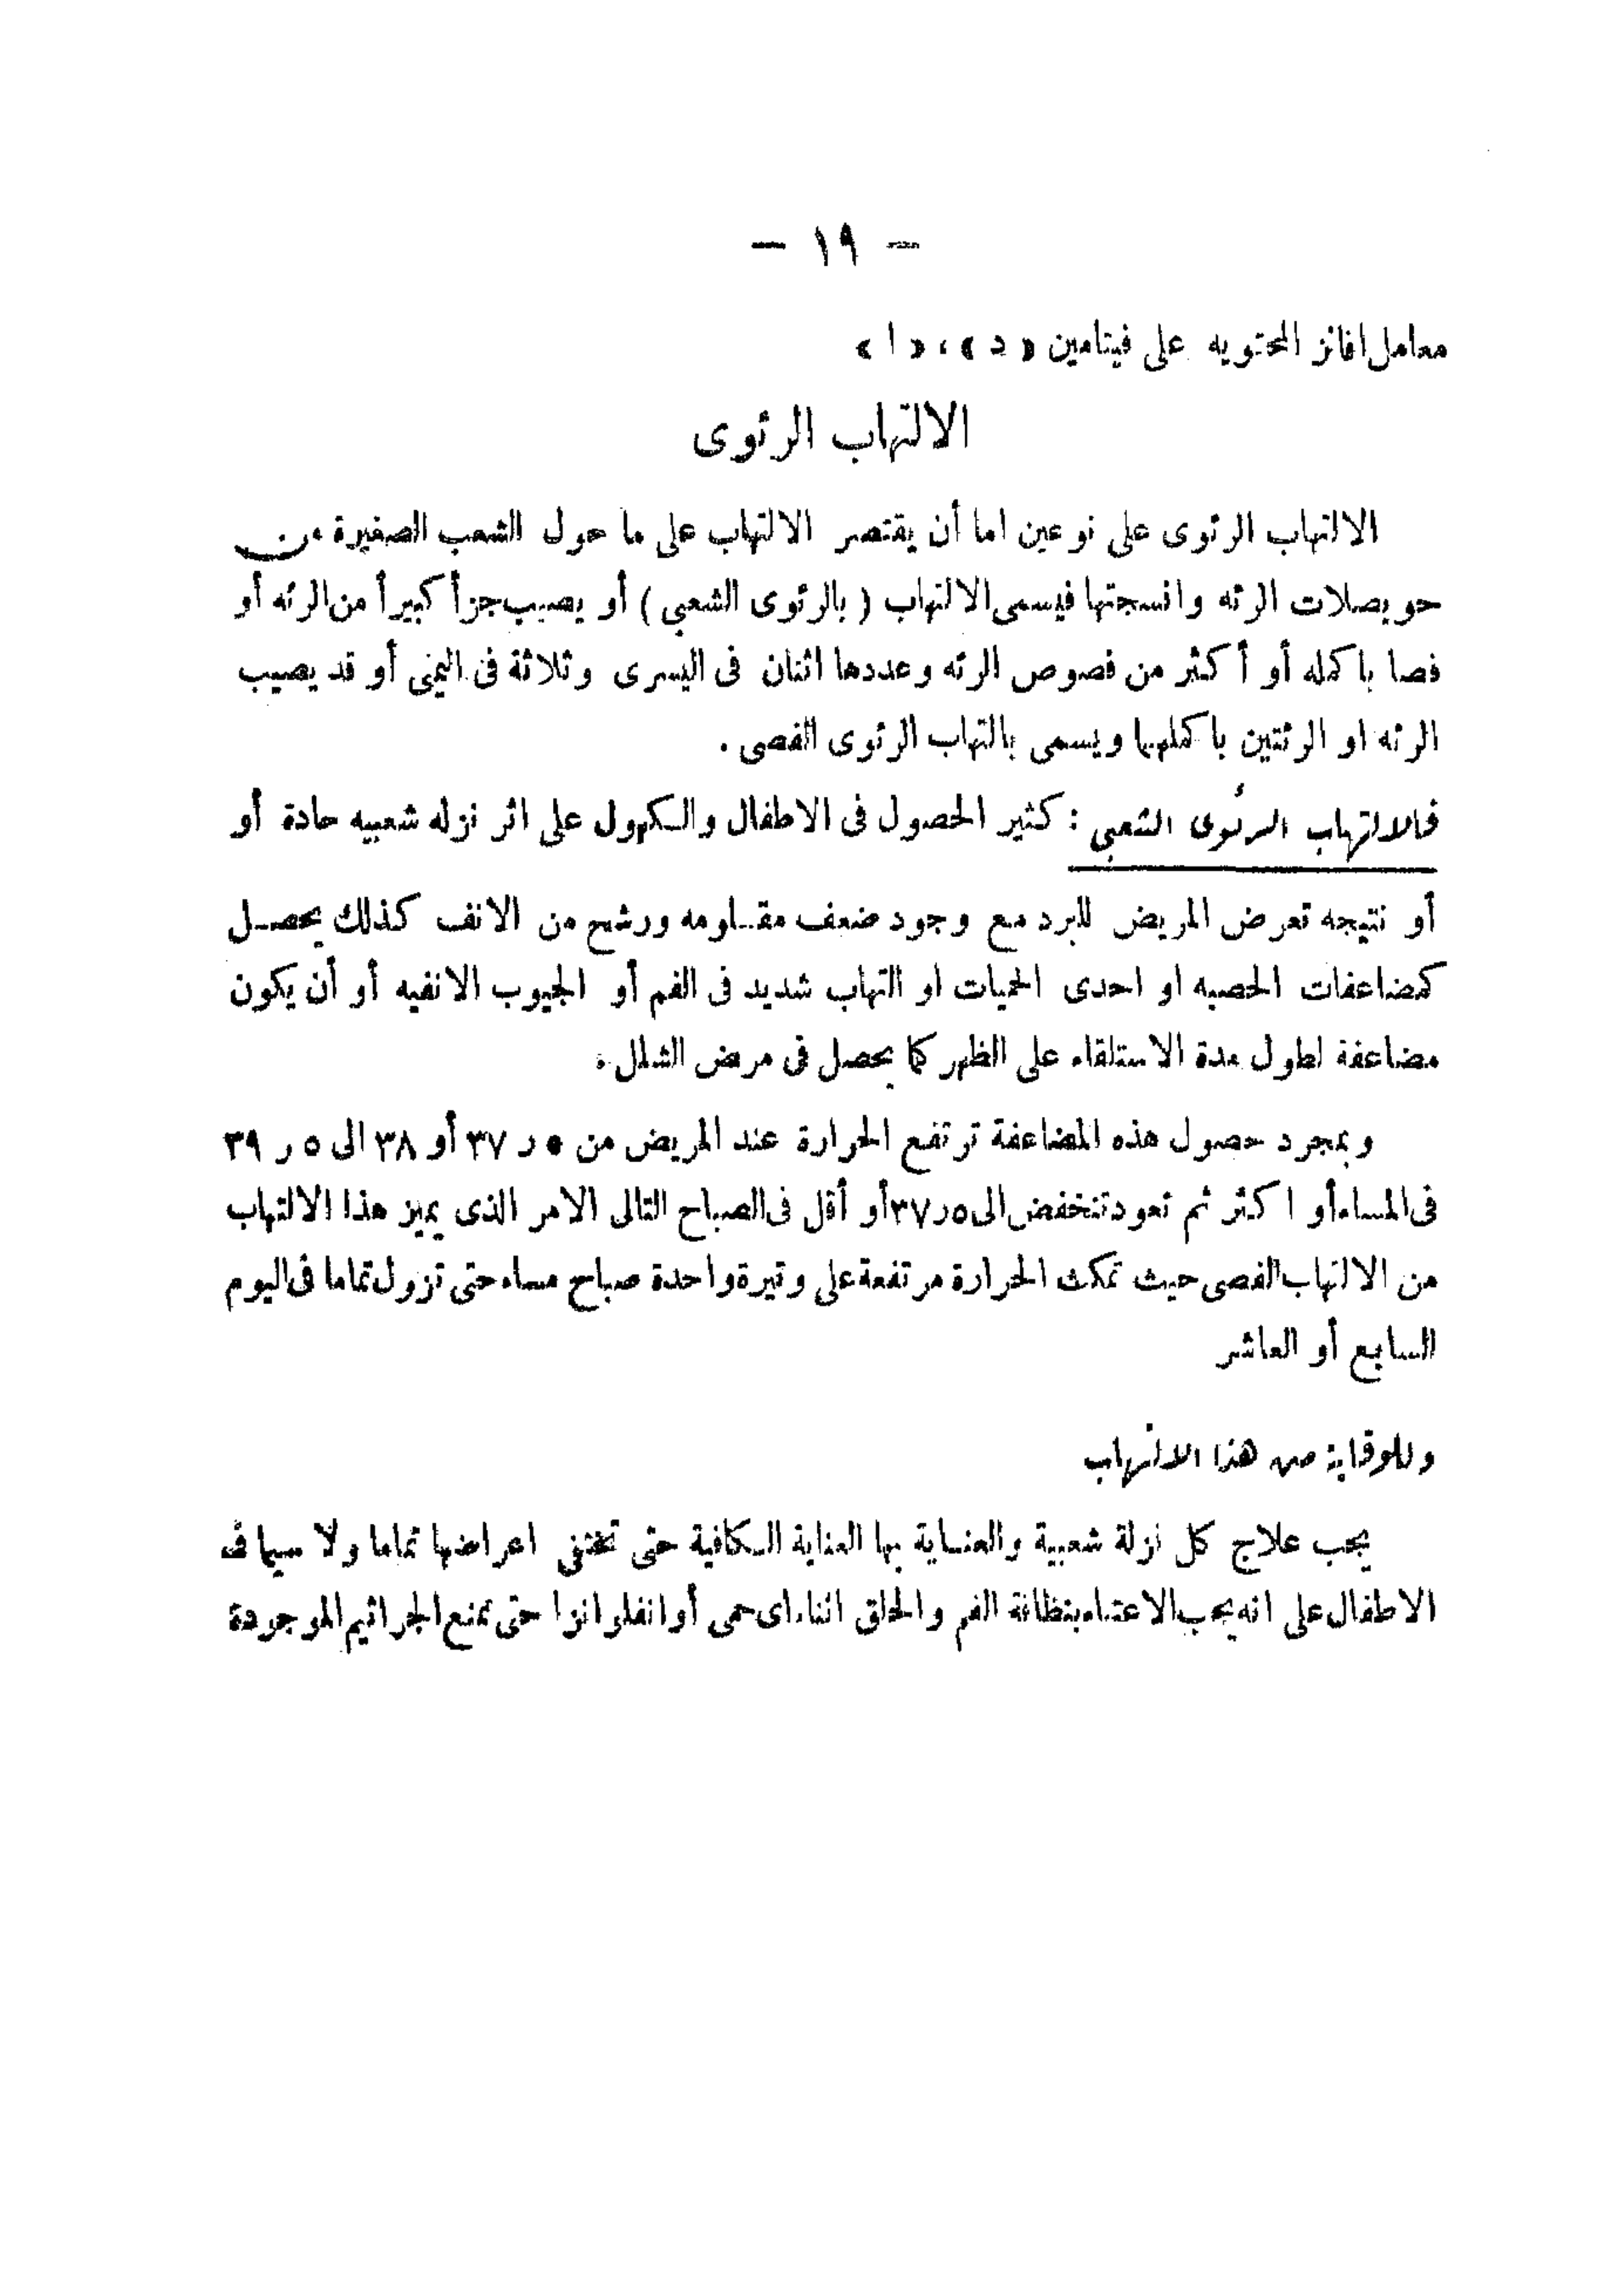 — ١٩ —
معامل افانز المحتويه على فيتامين « د » ، « ا »
الالتهاب الرئوى
الالتهاب الرئوى على نوعين اما أن يقتصر الالتهاب على ما حول الشعب الصغيرة من
حويصلات الرئه وانسجتها فيسمى الالتهاب ( بالرئوى الشعبى ) أو يصيب جزأ كبيرأ من الرئه أو
فصا باكمله أو أكثر من فصوص الرئه وعددها اثنان فى اليسرى وثلاثة فى اليمنى أو قد يصيب
الرئه او الرئتين باكملهما ويسمى بالتهاب الرئوى الفصى .
فالالتهاب الرئوى الشعبى : كثير الحصول فى الاطفال والكهول على اثر نزله شعبيه حادة أو
أو نتيجه تعرض المريض للبرد مع وجود ضعف مقاومه ورشح من الانف كذلك يحصل
كمضاعفات الحصبه او احدى الحميات او التهاب شديد فى الفم أو الجيوب الانفيه أو أن يكون
مضاعفة لطول مدة الاستلقاء على الظهر كما يحصل فى مرض الشلل .
وبمجرد حصول هذه المضاعفة ترتفع الحرارة عند المريض من ٥ ر ٣٧ أو ٣٨ الى ٥ ر ٣٩
فى المساء أو اكثر ثم تعود تنخفض الى ٥ر٣٧ أو أقل فى الصباح التالى الامر الذى يميز هذا الالتهاب
من الالتهاب الفصى حيث تمكث الحرارة مرتفعة على وتيرة واحدة صباح مساء حتى تزول تماما فى اليوم
السابع أو العاشر
وللوقاية من هذا الالتهاب
يجب علاج كل نزلة شعبية والعناية بها العناية الكافية حتى تختفى اعراضها تماما ولا سيما فى
الاطفال على انه يجب الاعتناء بنظافة الفم والحلق اثناء اى حمى أو انفلوانزا حتى تمنع الجراثيم الموجودة